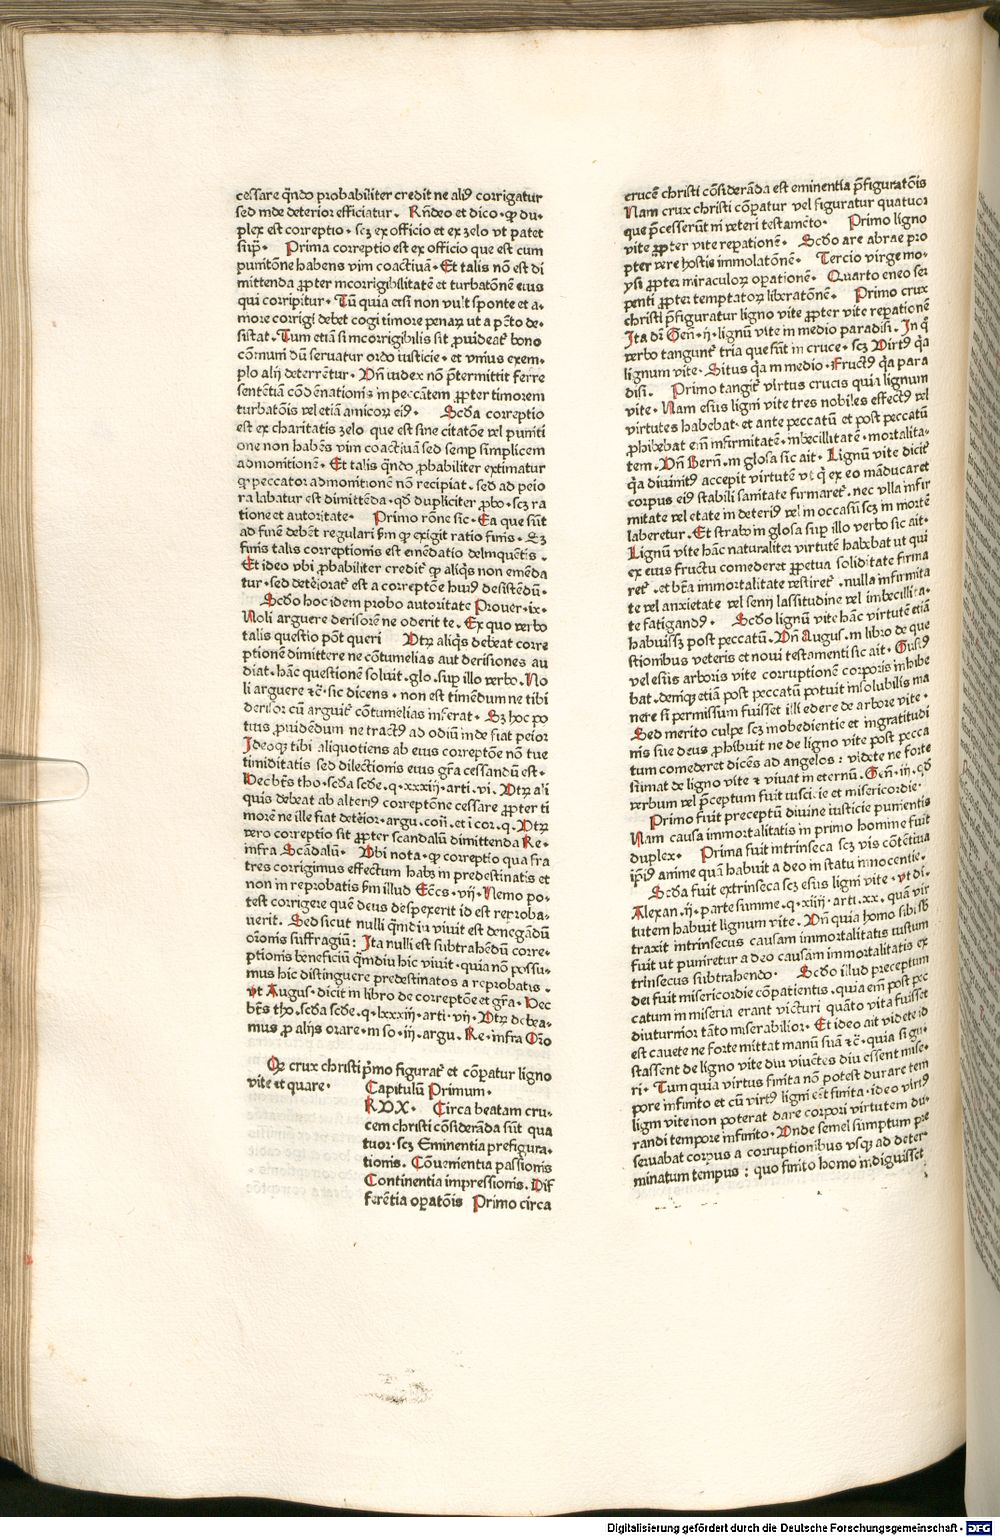 cessare qñdo probabiliter credit ne aliꝰ corrigatur
sed inde deterior efficiatur. Rñdeo et dico ꝙ du-
plex est correptio. scꝫ ex officio et ex zelo vt patet
supᷣ. Prima correptio est ex officio que est cum
punitõne habens vim coactiuã. Et talis nõ est di
mittenda ꝓpter incorrigibilitatẽ et turbatõnẽ eius
qui corripitur. Tũ quia etsi non vult sponte et a-
more corrigi debet cogi timore penaꝝ ut a pctõ de-
sistat. Tum etiã si incorrigibilis sit ꝓuideat᷑ bono
cõmuni dũ seruatur ordo iusticie. et vnius exem-
plo alij deterrẽtur. Vñ iudex nõ p̃termittit ferre
sententiã cõdẽnationis in peccãtem ꝓpter timorem
turbatõis vel etiã amicoꝝ eiꝰ. Scḋa correptio
est ex charitatis zelo que est sine citatõe vel puniti
one non habẽs vim coactiuã sed semꝑ simplicem
admonitionẽ. Et talis qñdo ꝓbabiliter extimatur
ꝙ peccator admonitionẽ nõ recipiat. sed ad peio
ra labatur est dimittẽda. qḋ dupliciter ꝓbo. scꝫ ra
tione et autoritate. Primo rõne sic. Ea que sũt
ad finẽ debẽt regulari ẜm ꝙ exigit ratio finis. Sꝫ
finis talis correptionis est emẽdatio delinquẽtis.
Et ideo vbi ꝓbabiliter credit᷑ ꝙ aliq̃s non emẽda
tur. sed deterioraᷣt est a correptõe huiꝰ desistẽdũ.
Scḋo hoc idem probo autoritate Prouer. ix.
Noli arguere derisorẽ ne oderit te. Ex quo verbo
talis questio põt queri Vtꝝ aliq̃s debeat corre
ptionẽ dimittere ne cõtumelias aut derisiones au
diat. hãc questionẽ soluit. glo. suꝑ illo verbo. No
li arguere ⁊c̃. sic dicens. non est timẽdum ne tibi
derisor cũ arguit᷑ cõtumelias inferat. Sꝫ hoc po
tius ꝓuidẽdum ne tractꝰ ad odiũ inde fiat peior
Ideoqꝫ tibi aliquotiens ab eius correptõe nõ tue
timiditatis sed dilectionis eius gr̃a cessandũ est.
Hec bt̃s tho. scḋa scḋe. q. xxxiij. arti. vi. Vtꝝ ali
quis debeat ab alteriꝰ correptõne cessare ꝓpter ti
morẽ ne ille fiat deterior. argu. coñ. et i cor. q. Vtꝝ
vero correptio sit ꝓpter scandalũ dimittenda Re.
infra Scãdalũ. Vbi nota. ꝙ correptio qua fra
tres corrigimus effectum habꝫ in predestinatis et
non in reprobatis ẜm illud Eccs̃. vij. Nemo po-
test corrigere quẽ deus despexerit id est reproba-
uerit. Sed sicut nulli qᷓmdiu viuit est denegãdũ
orõnis suffragiũ: Ita nulli est subtrahẽdũ corre-
ptionis beneficiũ qᷓmdiu hic viuit. quia nõ possu-
mus hic distinguere predestinatos a reprobatis.
vt Augus. dicit in libro de correptõe et gr̃a. Hec
bt̃s tho. scḋa scḋe. q. lxxxiij. arti. vij. Vtꝝ de bea-
mus ꝓ alijs orare. in so. iij. argu. Re. infra Orõ
Qꝫ crux christi pᷣmo figurat᷑ et cõpatur ligno
vite et quare. Capitulũ Primum.
RVX. Circa beatam cru-
cem christi cõsiderãda sũt qua
tuor. scꝫ Eminentia prefigura-
tionis. Cõuenientia passionis
Continentia impressionis. Dif
ferẽtia oꝑatõis Primo circa
crucẽ christi cõsiderãda est eminentia p̃figuratõis
Nam crux christi cõpatur vel figuratur quatuor
que p̃cesserũt in veteri testamẽto. Primo ligno
vite ꝓpter vite reꝑationẽ. Scḋo are abrae pro
pter vere hostie immolatõnẽ. Tercio virge mo-
ysi ꝓpter miraculoꝝ oꝑationẽ. Quarto eneo ser
penti ꝓpter temptatoꝝ liberatõnẽ. Primo crux
christi p̃figuratur ligno vite ꝓpter vite reꝑationẽ
Ita dꝛ̃ Geñ. ij. lignũ vite in medio paradisi. In q̃
verbo tangunt᷑ tria que sũt in cruce. scꝫ Virtꝰ qᷓa
lignum vite. Situs qᷓa in medio. Fructꝰ qᷓa para
disi. Primo tangit᷑ virtus crucis quia lignum
vite. Nam esus ligni vite tres nobiles effectꝰ vel
virtutes habebat. et ante peccatũ et post peccatũ
ꝓhibebat em̃ infirmitatẽ. inbecillitatẽ. mortalita-
tem. Vñ Berñ. in glosa sic ait. Lignũ vite dicit᷑
qᷓa diuinitꝰ accepit virtutẽ vt q̃ ex eo mãducaret
corpus eiꝰ stabili sanitate firmaret᷑. nec vlla infir
mitate vel etate in deteriꝰ vel in occasũ scꝫ in mortẽ
laberetur. Et strabꝰ in glosa suꝑ illo verbo sic ait.
Lignũ vite hãc naturaliter virtutẽ habebat ut qui
ex eius fructu comederet ꝑpetua soliditate firma
ret᷑. et btã immortalitate vestiret᷑. nulla infirmita
te vel anxietate vel senij lassitudine vel imbecillita-
te fatigandꝰ. Scḋo lignũ vite hãc virtutẽ etiã
habuissꝫ post peccatũ. Vñ Augus. in libro de que
stionibus veteris et noui testamenti sic ait. Gusꝰ
vel esus arboris vite corruptionẽ corporis inhibe
bat. deniqꝫ etiã post peccatũ potuit insolubilis ma
nere si permissum fuisset illi edere de arbore vite.
Sed merito culpe scꝫ inobedientie et ingratitudi
nis sue deus ꝓhibuit ne de ligno vite post pecca
tum comederet dicẽs ad angelos: videte ne forte
sumat de ligno vite ⁊ viuat in eternũ. Geñ. iij. qḋ
verbum vel p̃ceptum fuit iusticie et misericordie.
Primo fuit preceptũ diuine iusticie punientis
Nam causa immortalitatis in primo homine fuit
duplex. Prima fuit intrinseca scꝫ vis cõtentiua
ipiꝰ anime quã habuit a deo in statu innocentie.
Scḋa fuit extrinseca scꝫ esus ligni vite. vt di.
Alexan. ij. parte summe. q. xiiij. arti. xx. quã vir
tutem habuit lignum vite. Vñ quia homo sibi sb
traxit intrinsecus causam immortalitatis iustum
fuit ut puniretur a deo causam immortalitatis ex
trinsecus subtrahendo. Scḋo illud preceptum
dei fuit misericordie cõpatientis. quia em̃ post pec
catum in miseria erant victuri quãto vita fuisset
diuturnior tãto miserabilior. Et ideo ait videte id
est cauete ne forte mittat manũ suã ⁊c̃. quia si gu-
stassent de ligno vite diu viuẽtes diu essent mise-
ri. Tum quia virtus finita nõ potest durare tem
pore infinito et cũ virtꝰ ligni eẽt finita. ideo virtꝰ
ligni vite non poterat dare corpori virtutem du-
randi tempore infinito. Vnde semel sumptum pre
seruabat corpus a corruptionibus vsqꝫ ad deter
minatum tempus: quo finito homo indiguisset
Digitalisierung gefördert durch die Deutsche Forschungsgemeinschaft - DFG